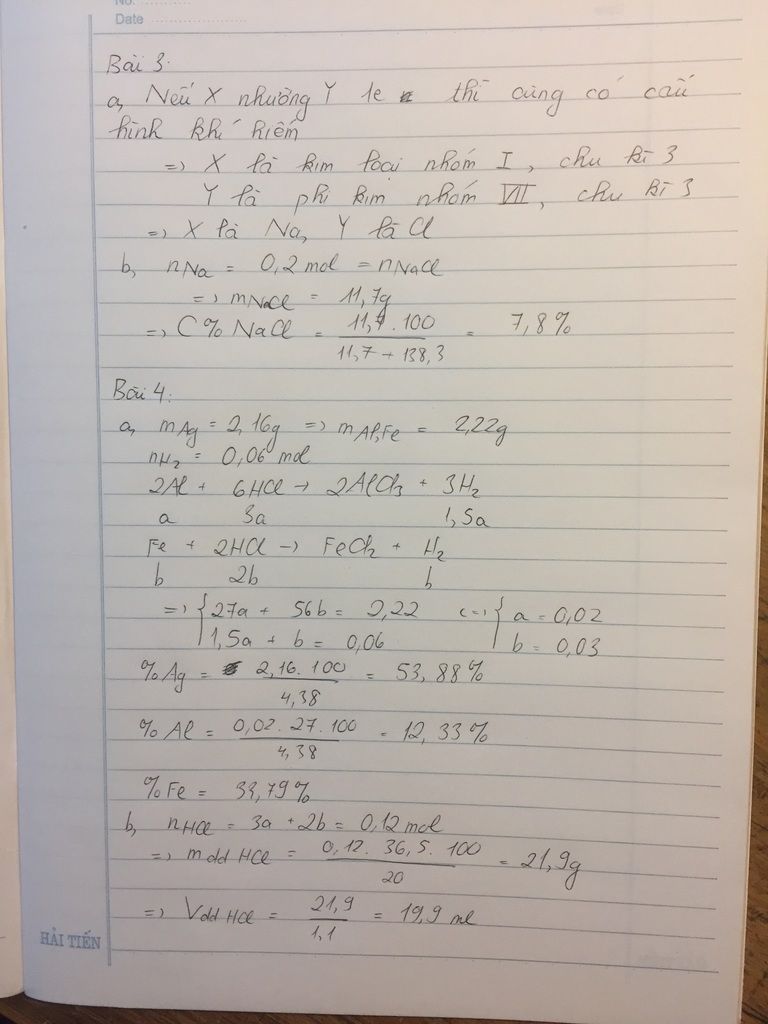 No.
Date
Bài 3:
a, Nếu X nhường Y 1e thì cùng có cấu
hình khí hiếm
=> X là kim loại nhóm I, chu kì 3
Y là phi kim nhóm VII, chu kì 3
=> X là Na, Y là Cl
b, nNa = 0,2 mol = nNaCl
=> mNaCl = 11,7g
=> C% NaCl = 11,7 . 100 / 11,7 + 138,3 = 7,8%
Bài 4:
a, mAg = 2,16g => mAl,Fe = 2,22g
nH2 = 0,06 mol
2Al + 6HCl → 2AlCl3 + 3H2
a 3a 1,5a
Fe + 2HCl → FeCl2 + H2
b 2b b
=> { 27a + 56b = 2,22 <=> { a = 0,02
1,5a + b = 0,06 b = 0,03
%Ag = 2,16. 100 / 4,38 = 53,88%
%Al = 0,02. 27. 100 / 4,38 = 12,33%
%Fe = 33,79%
b, nHCl = 3a + 2b = 0,12 mol
=> mdd HCl = 0,12. 36,5. 100 / 20 = 21,9g
=> Vdd HCl = 21,9 / 1,1 = 19,9 ml
HẢI TIẾN